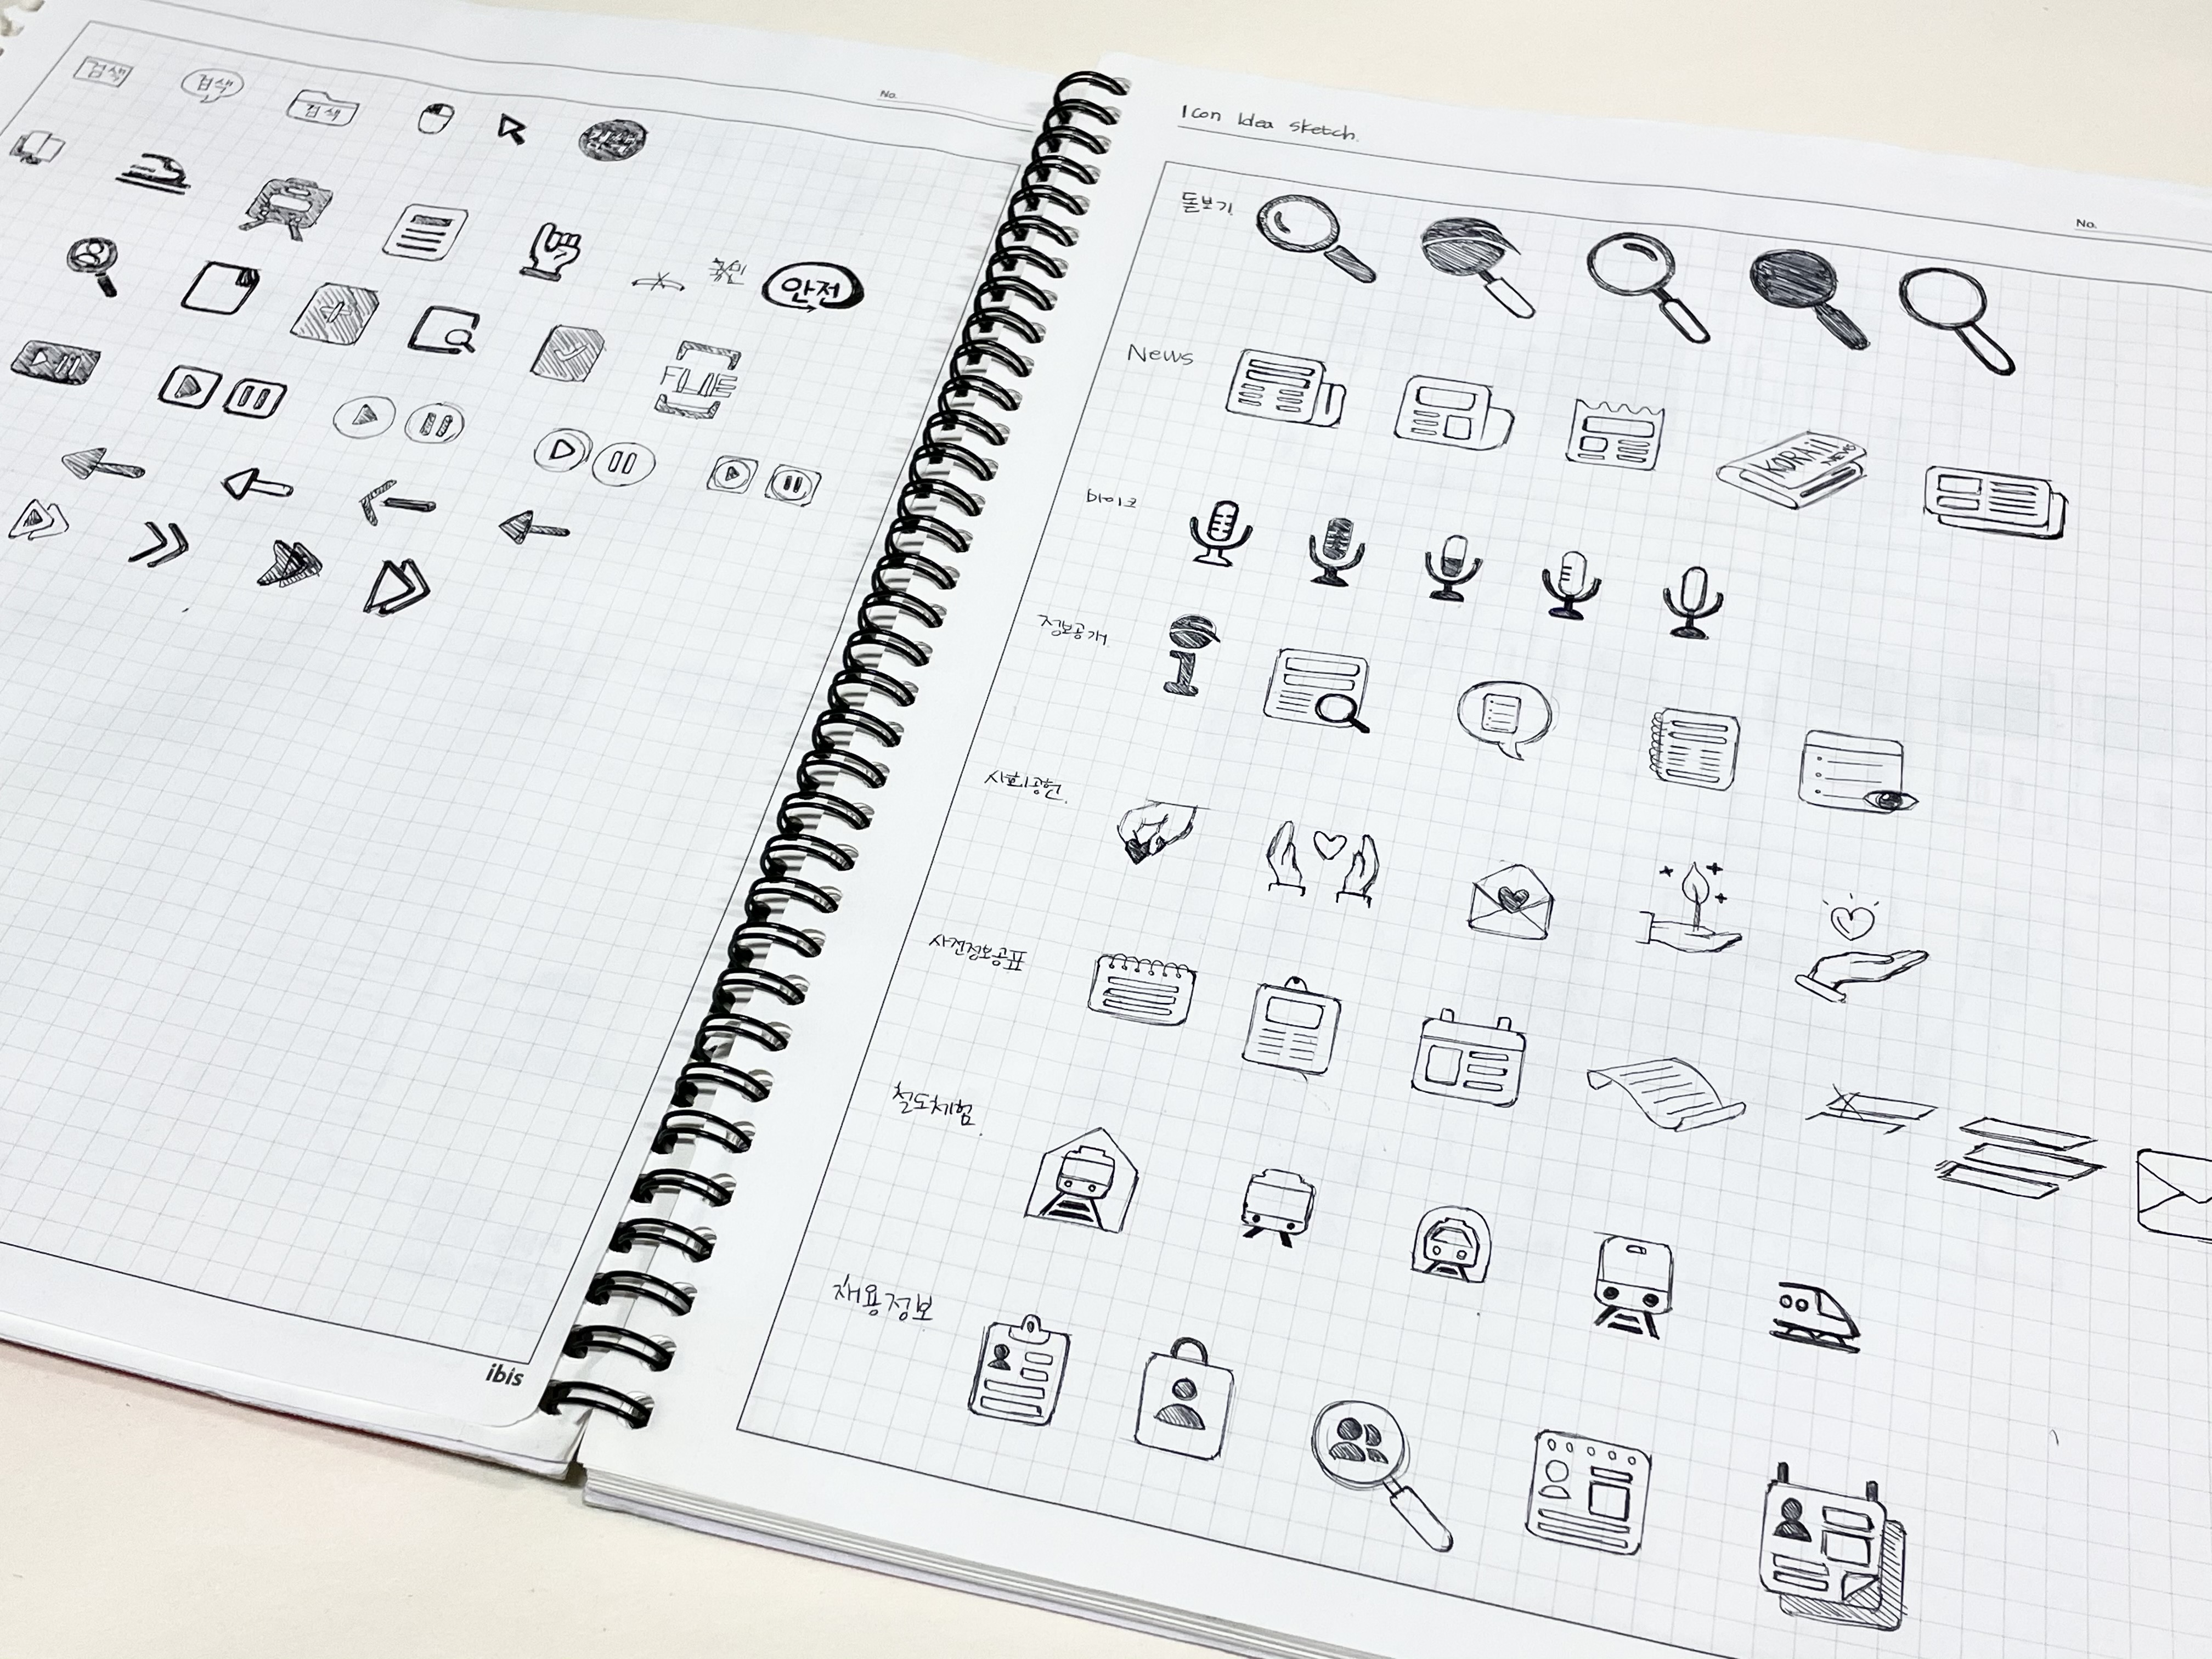 검색
검색
검색
검색
국민
안전
FLIE
ibis
No.
Icon Idea sketch.
No.
돋보기
News
KORAIL NEWS
마이크
정보공개
사회공헌
사전정보공표
철도체험
채용정보